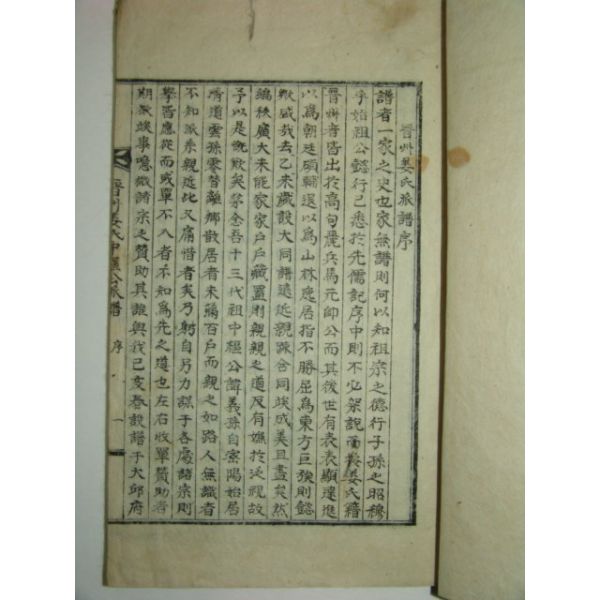 晋州姜氏派譜序
譜者一家之史也家無譜則何以知祖宗之德行子孫之昭穆
乎始祖公懿行已悉於先儒記序中則不必架說而姜氏籍
晋州者皆出於高句麗兵馬元帥公而其後世有表表顯達進
以爲朝廷碩輔退以爲山林隱居指不勝屈爲東方巨族則懿
歟盛哉去乙未歲設大同譜遠近親踈合同竣成美且盡矣然
編秩廣大未能家家戶戶藏置則親親之道反有嫌於泛視故
予以是慨歎矣第念吾十三代祖中樞公諱義孫自密陽始居
清道雲孫零替離鄉散居者未滿百戶而親之如路人無識者
不知派系親近比又痛惜者矣乃躬自另力謀于各處諸宗則
擧皆應從而或單不入者不知爲先之道也左右收單贊助者
期歟竣事噫微諸宗之贊助其誰與我己亥春設譜于大邱府
晋州姜氏中樞公派譜 序 一